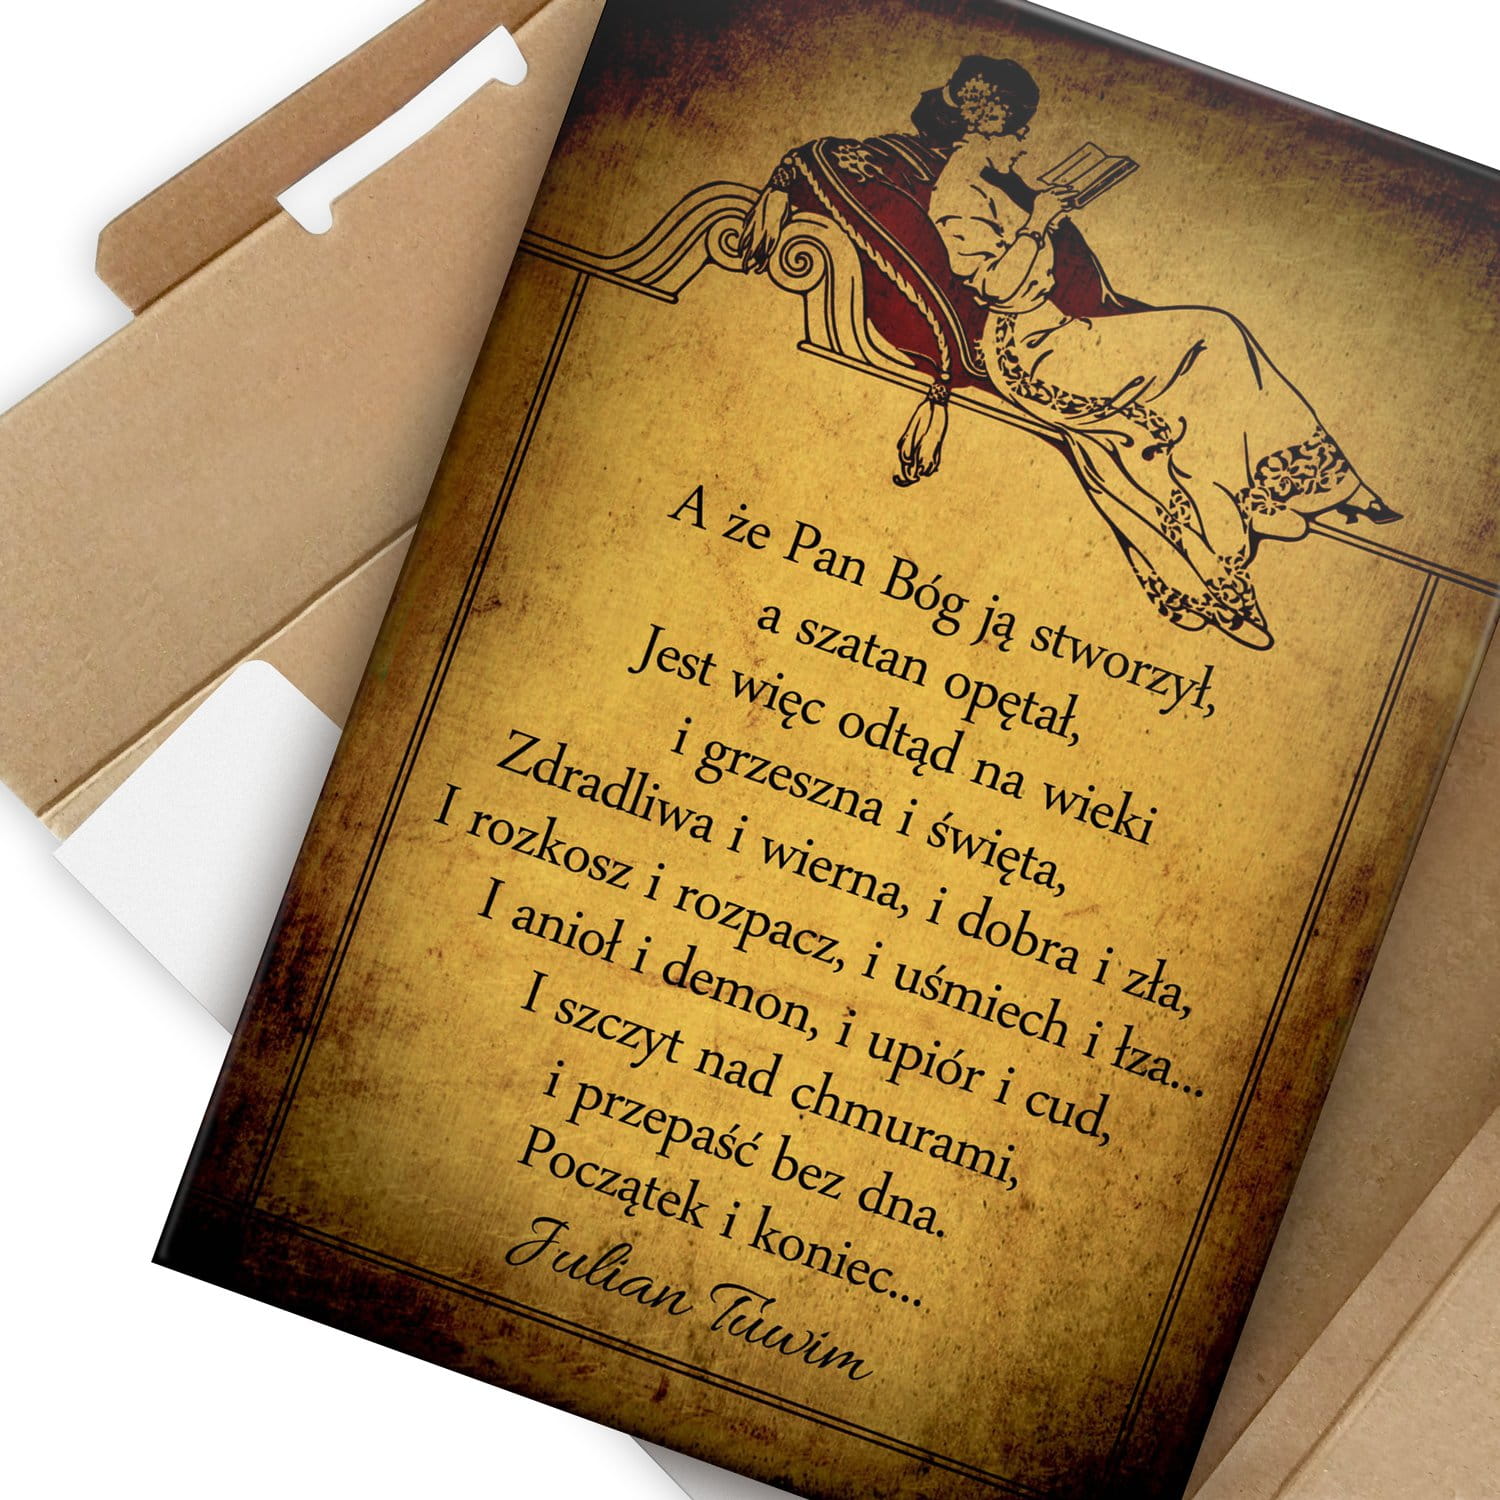 A że Pan Bóg ją stworzył,
a szatan opętał,
Jest więc odtąd na wieki
i grzeszna i święta,
Zdradliwa i wierna, i dobra i zła,
I rozkosz i rozpacz, i uśmiech i łza...
I anioł i demon, i upiór i cud,
I szczyt nad chmurami,
i przepaść bez dna.
Początek i koniec...
Julian Tuwim